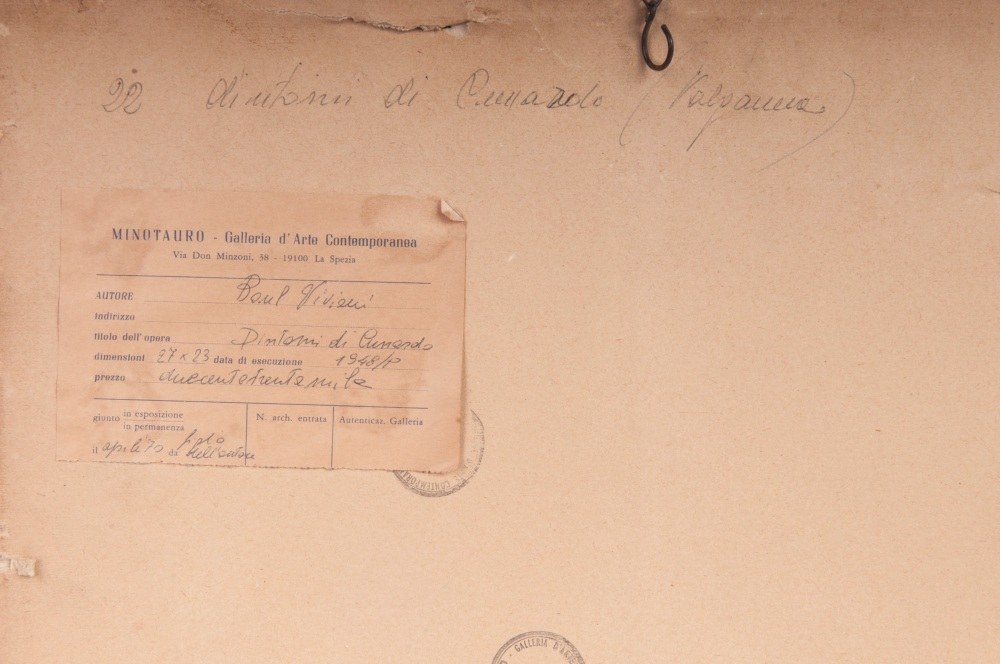 22 dintorni di Cunardo (Valganna)
MINOTAURO - Galleria d'Arte Contemporanea
Via Don Minzoni, 38 - 19100 La Spezia
AUTORE Raul Viviani
indirizzo
titolo dell'opera Dintorni di Cunardo
dimensioni 27 x 23 data di esecuzione 1948/P
prezzo duecentotrentamila
giunto in esposizione
in permanenza
il aprile 70 da
N. arch. entrata
Autenticaz. Galleria
CONTEMPOR
GALLERIA D'A